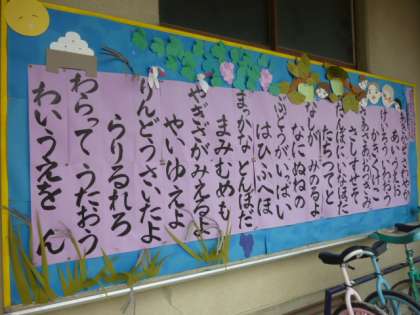 かきくけこ
さしすせそ
たんぼにいなほだ
たちつてと
みるよ
なにぬねの
ぶどうがいっぱい
はひふへほ
まっかな とんぼだ
まみむめも
やぎざがみえるよ
やいゆえよ
りんどうさいたよ
らりるれろ
わらって うたおう
わいうえを ん